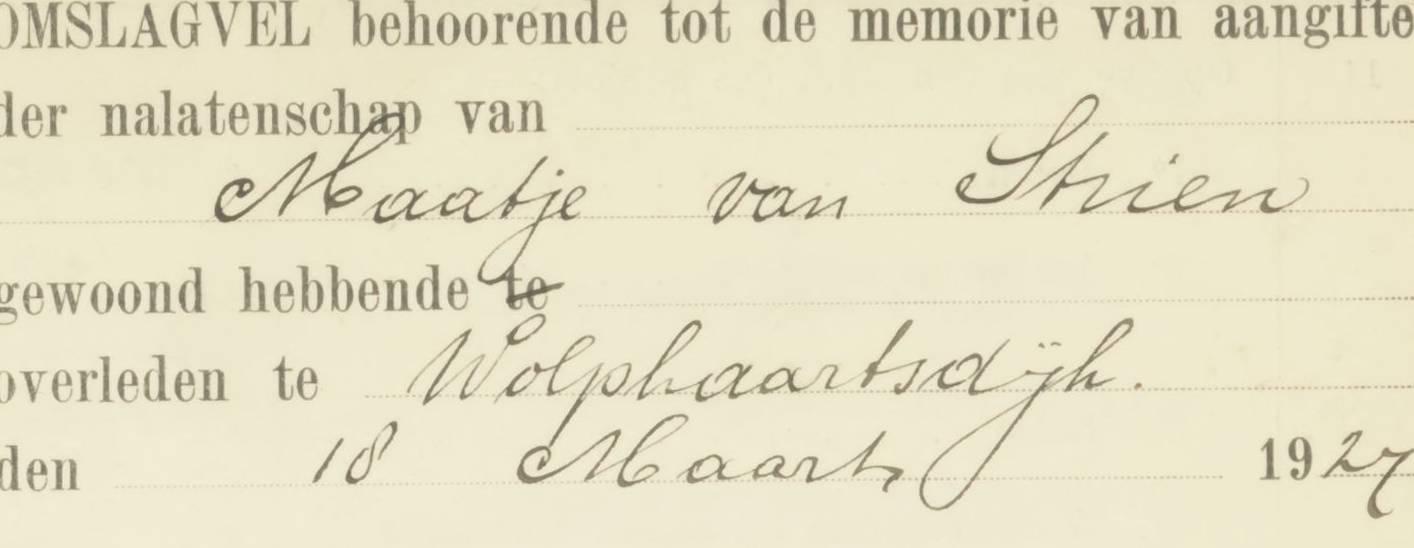 OMSLAGVEL behoorende tot de memorie van aangifte
der nalatenschap van
Maatje van Strien
gewoond hebbende te
overleden te Wolphaartsdijk.
den 18 Maart 1927